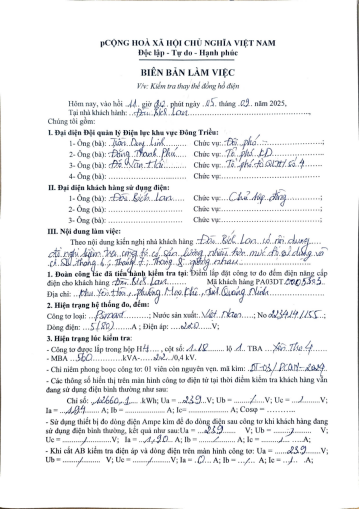 pCỘNG HOÀ XÃ HỘI CHỦ NGHĨA VIỆT NAM
Độc lập - Tự do - Hạnh phúc
BIÊN BẢN LÀM VIỆC
V/v: Kiểm tra thay thế đồng hồ điện
Hôm nay, vào hồi 11 giờ phút ngày 05 tháng 09 năm 2025,
Tại nhà khách hàng: Biết Lan
Chúng tôi gồm:
I. Đại diện Đội quản lý Điện lực khu vực Đông Triều:
1- Ông (bà): Trần Linh Chức vụ: Đội phó
2- Ông (bà): Đồng Thanh Phú Chức vụ: Tổ phó KD
3- Ông (bà): Chức vụ: Tổ phó số 4
II. Đại diện khách hàng sử dụng điện:
1- Ông (bà): Biết Lan Chức vụ: Chủ hợp đồng
2- Ông (bà): Chức vụ:
3- Ông (bà): Chức vụ:
III. Nội dung làm việc:
Theo nội dung kiến nghị nhà khách hàng Biết Lan có nội dung
đề nghị kiểm tra công tơ có sản lượng nhiều hơn mức độ sử dụng
tháng 6; Tháng 7; Tháng 8 giống nhau
1. Đoàn công tác đã tiến hành kiểm tra tại: Điểm lắp đặt công tơ đo đếm điện năng cấp
điện cho khách hàng Biết Lan Mã khách hàng PA03DT
Địa chỉ: Khu Yên Lâm, phường Mạo Khê, tỉnh Quảng Ninh
2. Hiện trạng hệ thống đo, đếm:
Công tơ loại: Nước sản xuất: Việt Nam; No
Dòng điện: 5(80) A; Điện áp: 220 V;
3. Hiện trạng lúc kiểm tra:
- Công tơ được lắp trong hộp H4, cột số: 1.18 lộ 1 TBA Yên Thọ 4
- MBA 560 kVA- 22 /0,4 kV.
- Chì niêm phong booc công tơ: 01 viên còn nguyên vẹn. mã kìm:
- Các thông số hiển thị trên màn hình công tơ điện tử tại thời điểm kiểm tra khách hàng vẫn
đang sử dụng điện bình thường như sau:
Chỉ số: kWh; Ua = 239 V; Ub = / V; Uc = / V;
Ia = A; Ib = A; Ic= A; Cosφ =
- Sử dụng thiết bị đo dòng điện Ampe kìm để đo dòng điện sau công tơ khi khách hàng đang
sử dụng điện bình thường, kết quả như sau:Ua = 239 V; Ub = / V;
Uc = / V; Ia = 1,90 A; Ib = / A; Ic = / A;
- Khi cắt AB kiểm tra điện áp và dòng điện trên màn hình công tơ: Ua = 239 V;
Ub = / V; Uc = / V; Ia = 0 A; Ib = / A; Ic = / A;